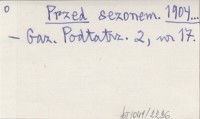 o Przed sezonem. 1904...
– Gaz. Podtatrz. 2, nr 17.